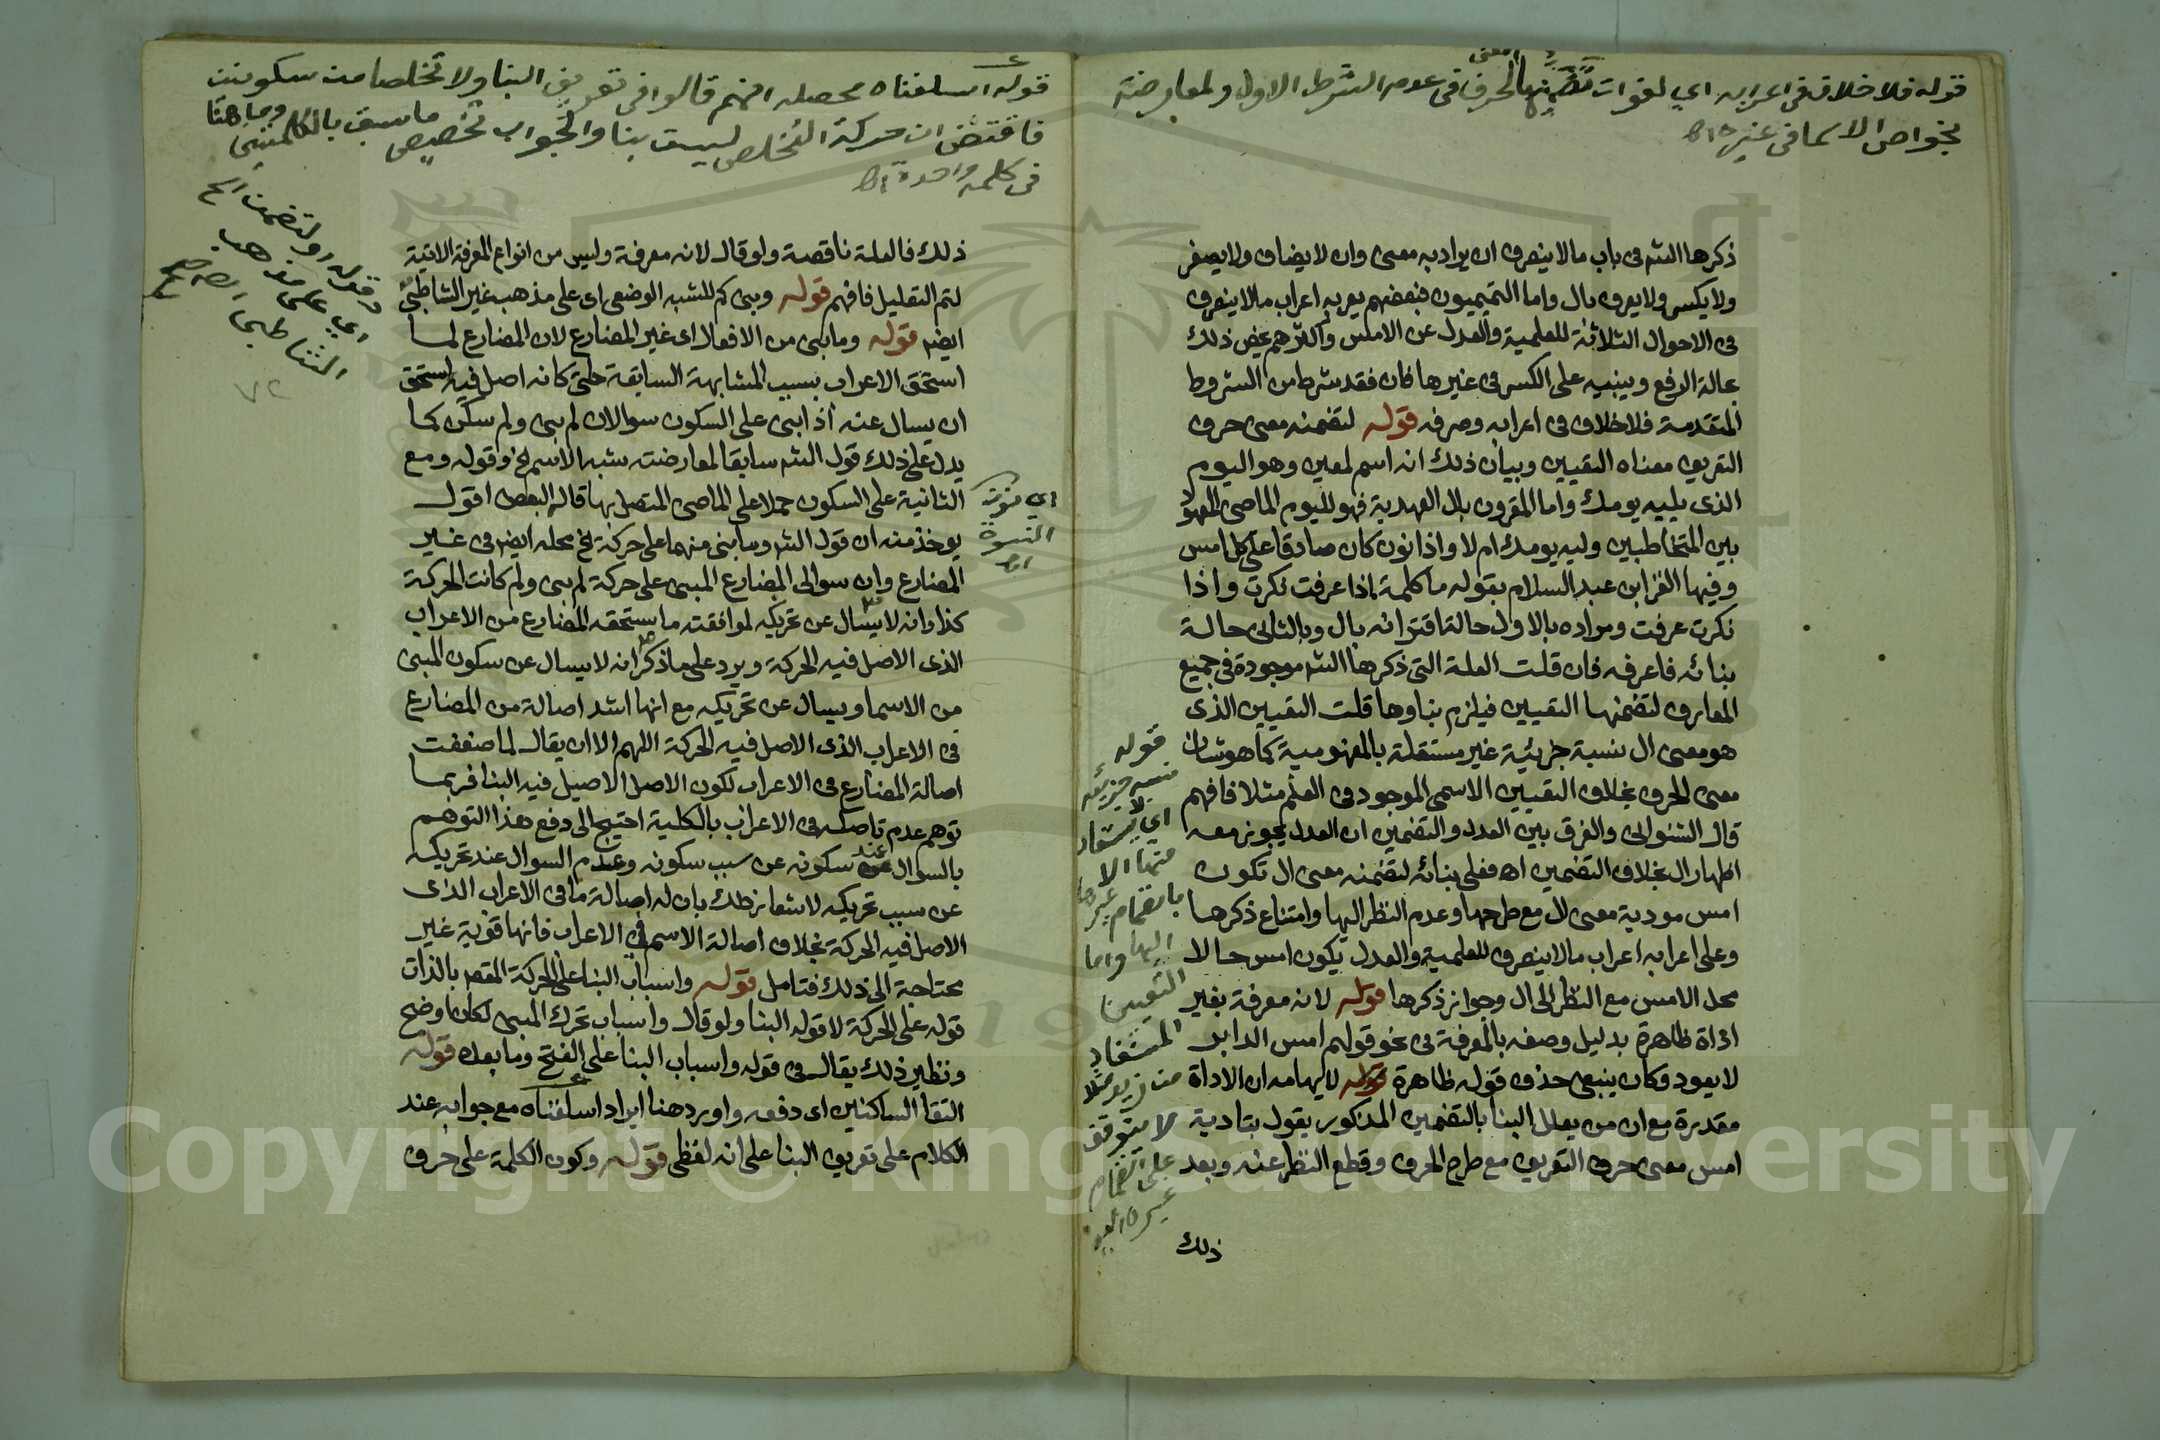 قوله فلا خلاف فى اعرابه اي لفوات تضمنها لمعنى الحرف فى عدم الشرط الاول ولمعارضته
بخواص الاسما فى غيره اه
ذكرها الشم فى باب مالاينصرف ان يراد به معين وان لايضاف ولا يصغر
ولا يكسر ولا يعرف بال واما التميميون فبعضهم يعربه اعراب مالا ينصرف
فى الاحوال الثلاثة للعلمية والعدل عن الامس واكثرهم يخص ذلك
بحالة الرفع ويبنيه على الكسر فى غيرها فان فقد شرط من الشروط
المتقدمة فلا خلاف فى اعرابه وصرفه قوله لتضمنه معنى حرف
التعريف معناه التعيين وبيان ذلك انه اسم لمعين وهو اليوم
الذى يليه يومك واما المقرون بال العهدية فهو لليوم الماضى المعهود
بين المتخاطبين وليه يومك ام لا واذا نون كان صادقا على كل امس
وفيها الغز ابن عبد السلام بقوله ما كلمة اذا عرفت نكرت واذا
نكرت عرفت ومراده بالاول حالة اقترانه بال وبالثانى حالة
بنائه فاعرفه فان قلت العلة التى ذكرها الشم موجودة فى جميع
المعارف لتضمنها التعيين فيلزم بناوها قلت التعيين الذى
هو معنى ال نسبة جزئية غير مستقلة بالمفهومية كما هو شان
معنى الحرف بخلاف التعيين الاسمى الموجود فى العلم مثلا فافهم
قال الشنوانى والفرق بين العدل والتضمين ان العدل يجوز معه
اظهار ال بخلاف التضمين اه فعلى بنائه لتضمنه معنى ال تكون
امس مودية معنى ال مع طرحها وعدم النظر اليها وامتناع ذكرها
وعلى اعرابه اعراب مالا ينصرف للعلمية والعدل يكون امس حالا
محل الامس مع النظر الى ال وجواز ذكرها قوله لانه معرفة بغير
اداة ظاهرة بدليل وصفه بالمعرفة فى نحو قولهم امس الدابر
لا يعود وكان ينبغى حذف قوله ظاهرة لايهامه ان الاداة
مقدرة مع ان من يعلل البنا بالتضمين المذكور يقول بتادية
امس معنى حرف التعريف مع طرح الحرف وقطع النظر عنه وبعد
ذلك
قوله
نسبة جزئية
اي لا يستفاد
منها الا
بانضمام غيرها
اليها واما
التعيين
المستفاد
من زيد مثلا
لا يتوقف
على انضمام
غيره اليه
قوله اسلفناه محصله انهم قالوا فى تعريف البنا ولا تخلصا من سكونين
فاقتضى ان حركة التخلص ليست بنا والجواب تخصيص ما سبق بالكلمتين وما هنا
فى كلمة واحدة اه
قوله او لتضمنه الخ
اي على مذهب
الشاطبى
ذلك فالعلة ناقصة ولو قال لانه معرفة وليس من انواع المعرفة الاتية
لتم التعليل فافهم قوله وبنى كم للشبه الوضعى اى على مذهب غير الشاطبى
ايضم قوله وما بنى من الافعال اى غير المضارع لان المضارع لما
استحق الاعراب بسبب المشابهة السابقة حتى كانه اصل فيه استحق
ان يسال عنه اذا بنى على السكون سوالان لم بنى ولم سكن كما
يدل على ذلك قول الشم سابقا لمعارضته شبه الاسم الخ وقوله ومع
الثانية على السكون حملا على الماضى المتصل بها قاله البعض اقول
يوخذ منه ان قول الشم وما بنى منهما على حركة الخ محله ايضم فى غير
المضارع وان سوالى المضارع المبنى على حركة لم بنى ولم كانت الحركة
كذا وانه لا يسال عن تحريكه لموافقته ما يستحقه المضارع من الاعراب
الذى الاصل فيه الحركة ويرد على ما ذكر انه لا يسال عن سكون المبنى
من الاسما ويسال عن تحريكه مع انها اشد اصالة من المضارع
فى الاعراب الذى الاصل فيه الحركة اللهم الا ان يقال لما ضعفت
اصالة المضارع فى الاعراب لكون الاصل الاصيل فيه البنا فربما
توهم عدم تاصله فى الاعراب بالكلية احتيج الى دفع هذا التوهم
بالسوال عند سكونه عن سبب سكونه وعدم السوال عند تحريكه
عن سبب تحريكه لاشعار ذلك بان له اصالة ما فى الاعراب الذى
الاصل فيه الحركة بخلاف اصالة الاسم فى الاعراب فانها قوية غير
محتاجة الى ذلك فتامل قوله واسباب البنا على الحركة المقصم بالذات
قوله على الحركة لا قوله البنا ولو قال واسباب تحرك المبنى لكان اوضح
ونظير ذلك يقال فى قوله واسباب البنا على الفتح وما بعده قوله
التقا الساكنين اى دفعه واورد هنا ايراد اسلفناه مع جوابه عند
الكلام على تعريف البنا على انه لفظى قوله وكون الكلمة على حرف
اي نون
النسوة
اه
Copyright © King Saud University